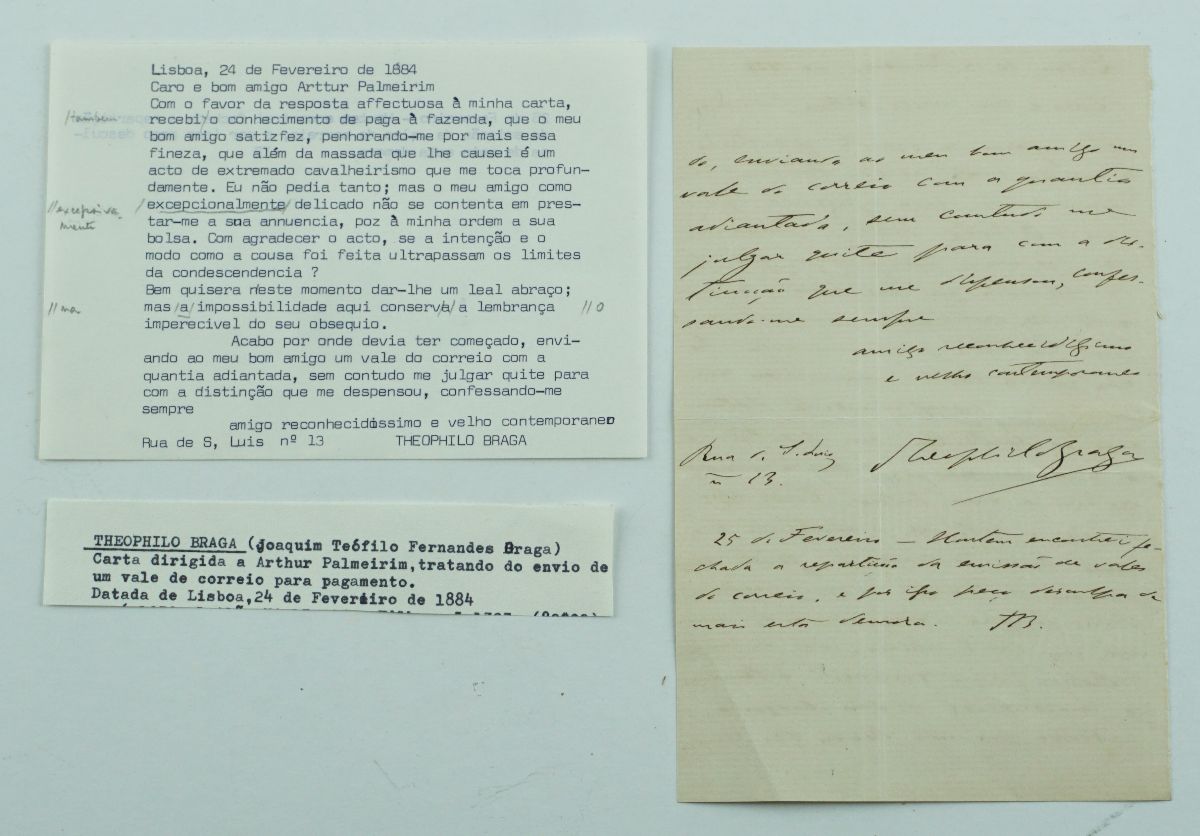 Lisboa, 24 de Fevereiro de 1884
Caro e bom amigo Arttur Palmeirim
Com o favor da resposta affectuosa à minha carta,
/também
recebi/o conhecimento de paga à fazenda, que o meu
bom amigo satizfez, penhorando-me por mais essa
fineza, que além da massada que lhe causei é um
acto de extremado cavalheirismo que me toca profun-
damente. Eu não pedia tanto; mas o meu amigo como
//excepsiva-
mente
/excepcionalmente/ delicado não se contenta em pres-
tar-me a sua annuencia, poz à minha ordem a sua
bolsa. Com agradecer o acto, se a intenção e o
modo como a cousa foi feita ultrapassam os limites
da condescendencia ?
Bem quisera n'este momento dar-lhe um leal abraço;
//na
mas /a/ impossibilidade aqui conserva/ a lembrança //o
imperecivel do seu obsequio.
Acabo por onde devia ter começado, envi-
ando ao meu bom amigo um vale do correio com a
quantia adiantada, sem contudo me julgar quite para
com a distinção que me despensou, confessando-me
sempre
amigo reconhecidissimo e velho contemporaneo
Rua de S, Luis nº 13 THEOPHILO BRAGA
THEOPHILO BRAGA (Joaquim Teófilo Fernandes Braga)
Carta dirigida a Arthur Palmeirim,tratando do envio de
um vale de correio para pagamento.
Datada de Lisboa,24 de Fevereiro de 1884
do, enviando ao meu bom amigo um
vale do correio com a quantia
adiantada, sem contudo me
julgar quite para com a dis-
tincção que me dispensou, confes-
sando-me sempre
amigo reconhecidissimo
e velho contemporaneo
Rua de S. Luiz
nº 13.
Theophilo Braga
25 de Fevereiro — Hontem encontrei fe-
chada a repartição da emissão de vales
do correio, e por isso peço desculpa de
mais esta demora. TB.